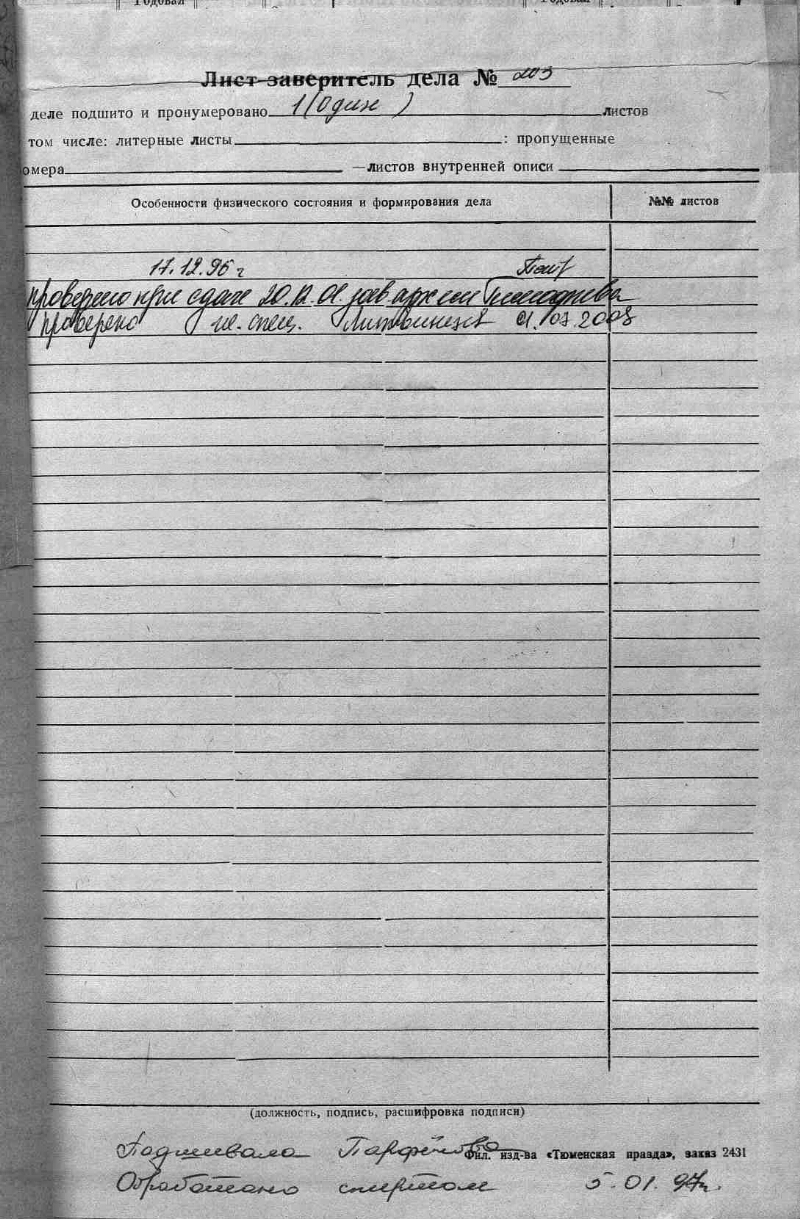 Годовая Годовая
Лист-заверитель дела № 203
деле подшито и пронумеровано 1 (один) листов
том числе: литерные листы : пропущенные
омера —листов внутренней описи
Особенности физического состояния и формирования дела №№ листов
17.12.96 г
Проверено при сдаче 20.12.01. зав. архивом
Проверено гл. спец. 01.03.2008
(должность, подпись, расшифровка подписи)
Подшивала Парфёнова Фил. изд-ва «Тюменская правда», заказ 2431
Обработано спиртом 5.01.97г.